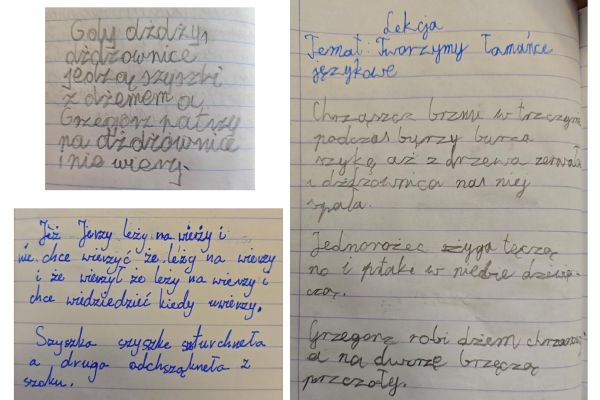 Gdy dżdży,
dżdżownice
jedzą szyszki
z dżemem a
Grzegorz patrzy
na dżdżownice
i nie wierzy.
Jeż Jerzy leży na wieży i
nie chce wierzyć że leży na wierzy
i że wierzył że leży na wierzy i
chce wiedziedzieć kiedy uwierzy.
Szyszka szyszke szturchneła
a druga odchsząkneła z
szoku.
Lekcja
Temat: Tworzymy łamańce
językowe
Chrząszcz brzmi w trzcinie
podczas burzy burza
szyką aż z drzewa zerwała
i dżdżownica nas niej
spała.
Jednorożec żyga tęczą
no i ptaki w niebie dziwa
czą.
Grzegorz robi dżem
a na dworzę brzęczą
przczoły.